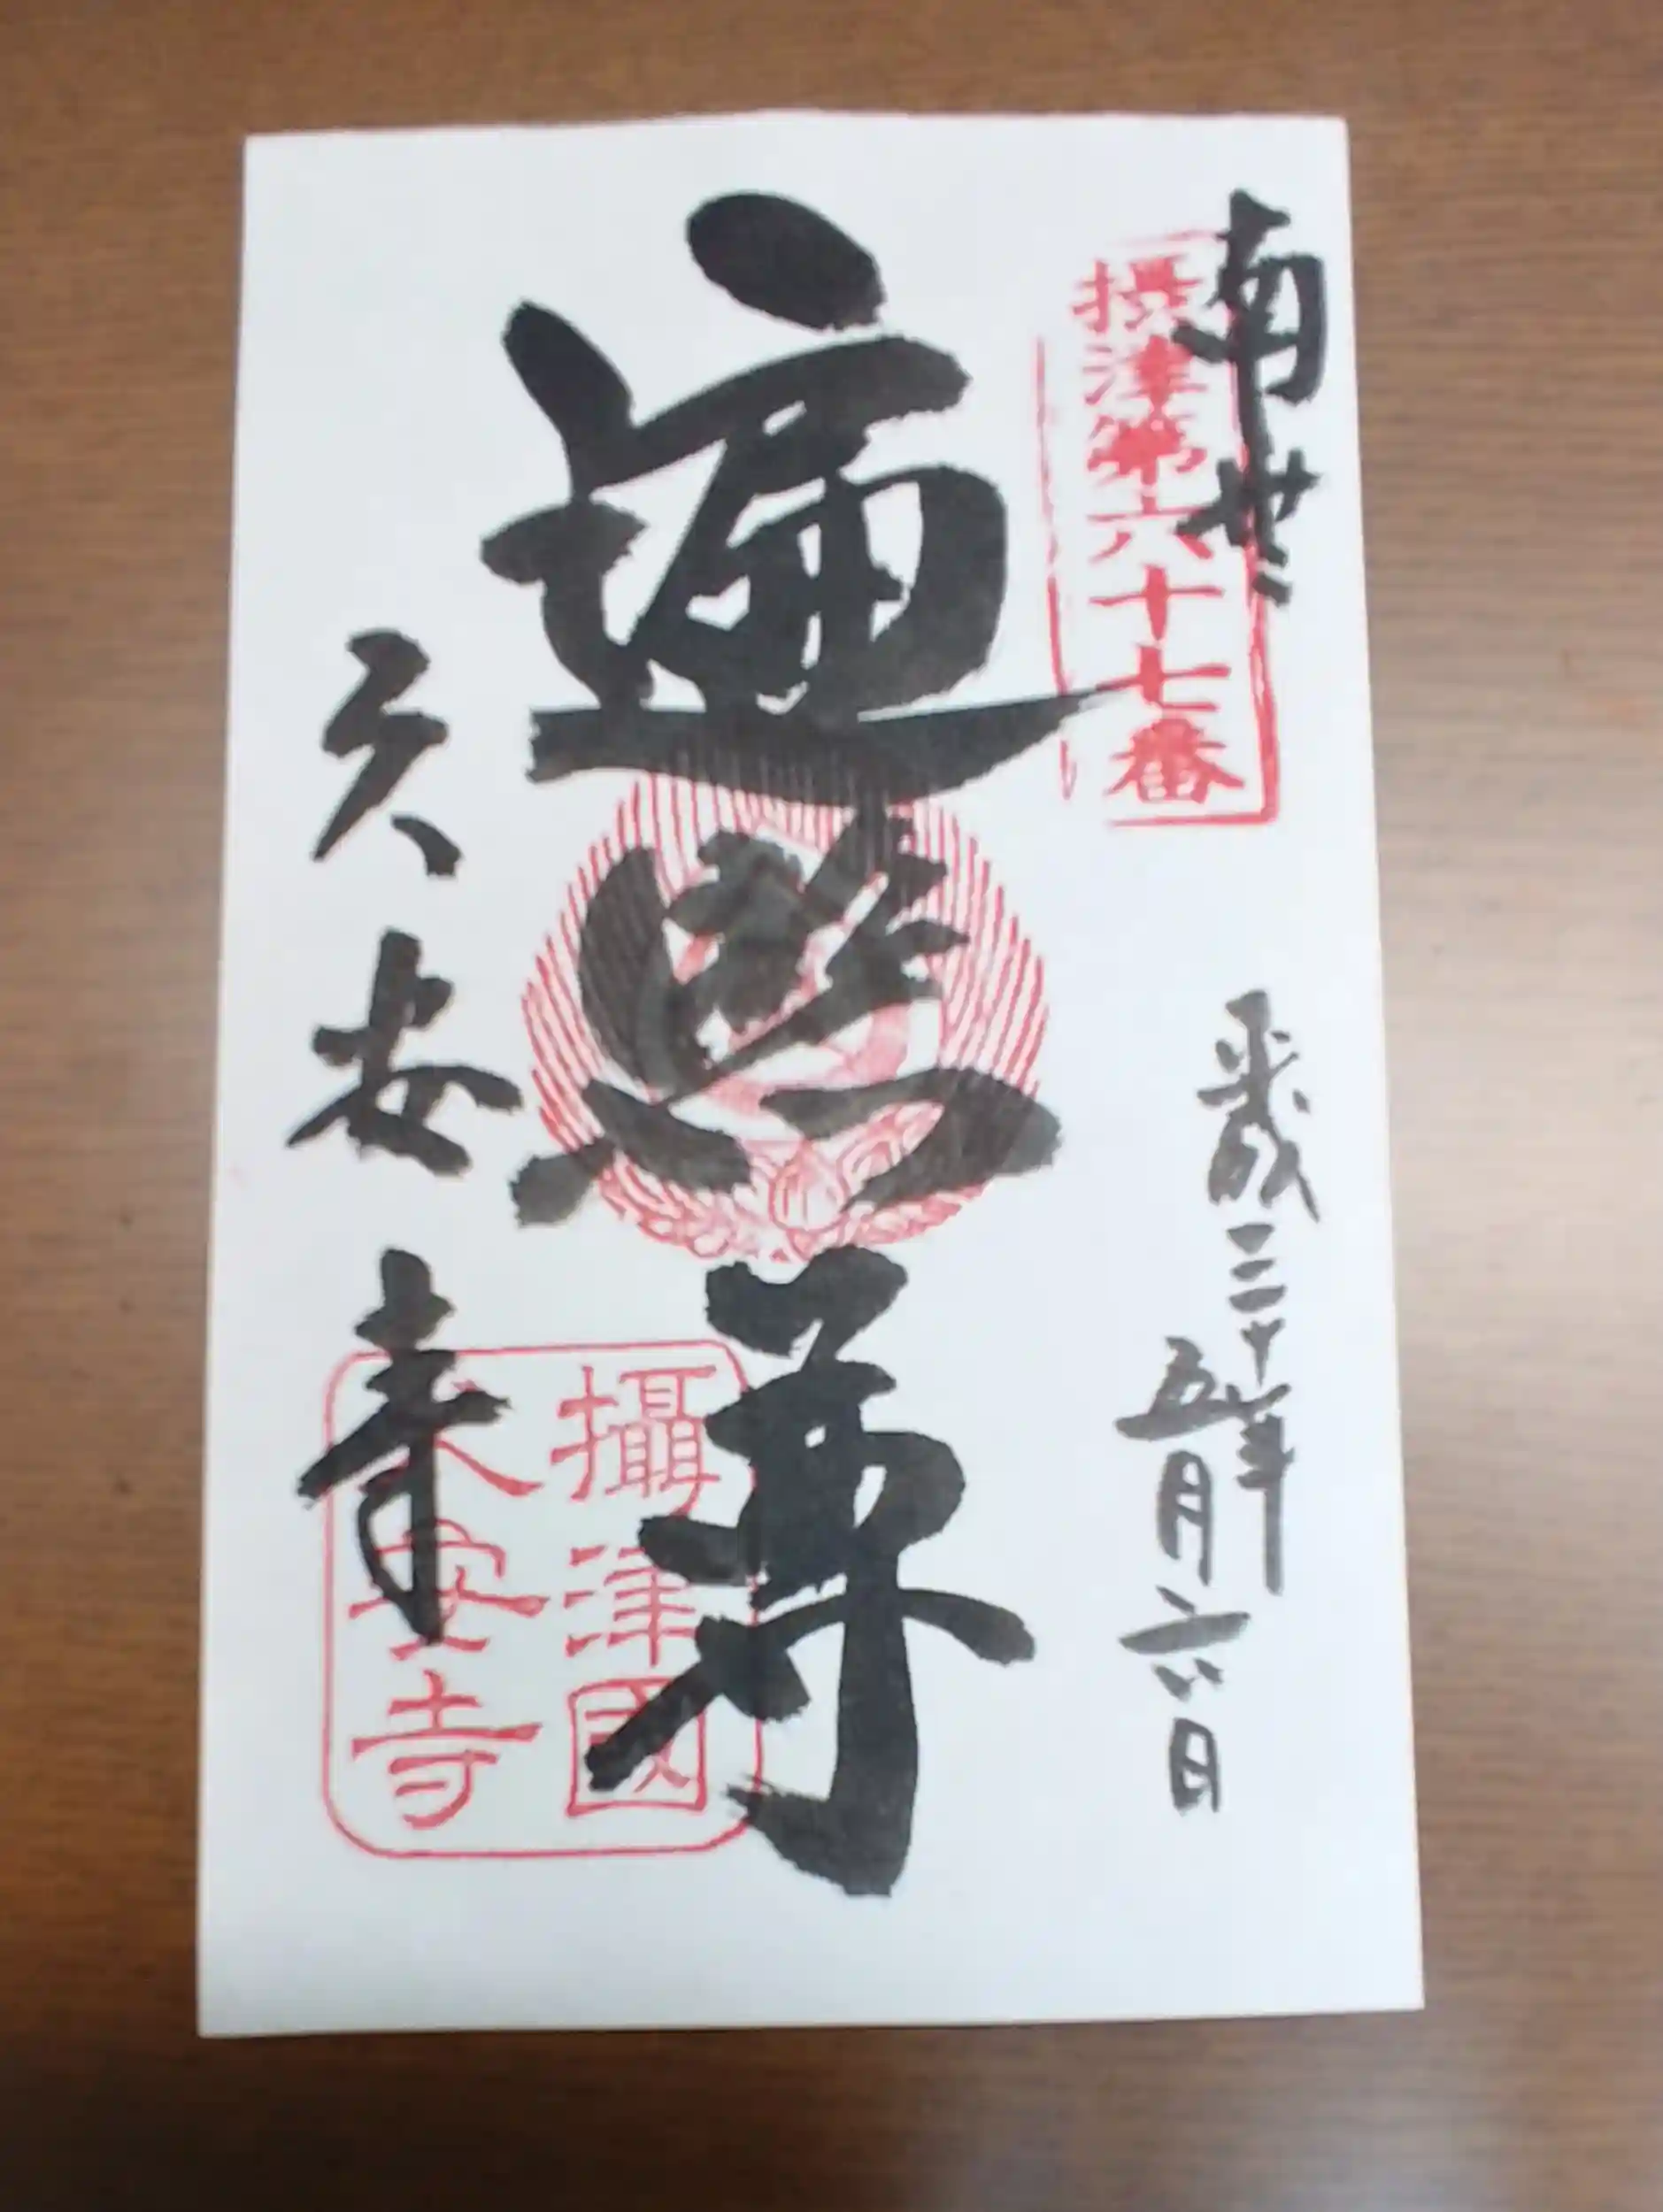 南無
摂津第六十七番
平成三十年
五月六日
遍照尊
久安寺
攝津國
久安寺